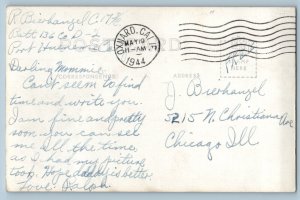 R Bierhangel C.17th
Batt D & C D
Port Hueneme
OXNARD, CALIF.
MAY 19
11-AM
1944
Darling Mommie.
CORRESPONDENCE
ADDRESS
Can't seem to find
time and write you.
I am fine and pretty
soon you can see
me all the time,
as I had my picture
took. Hope daddy is better.
Love. Ralph
J. Bierhangel
5215 N. Christiana Ave
Chicago Ill